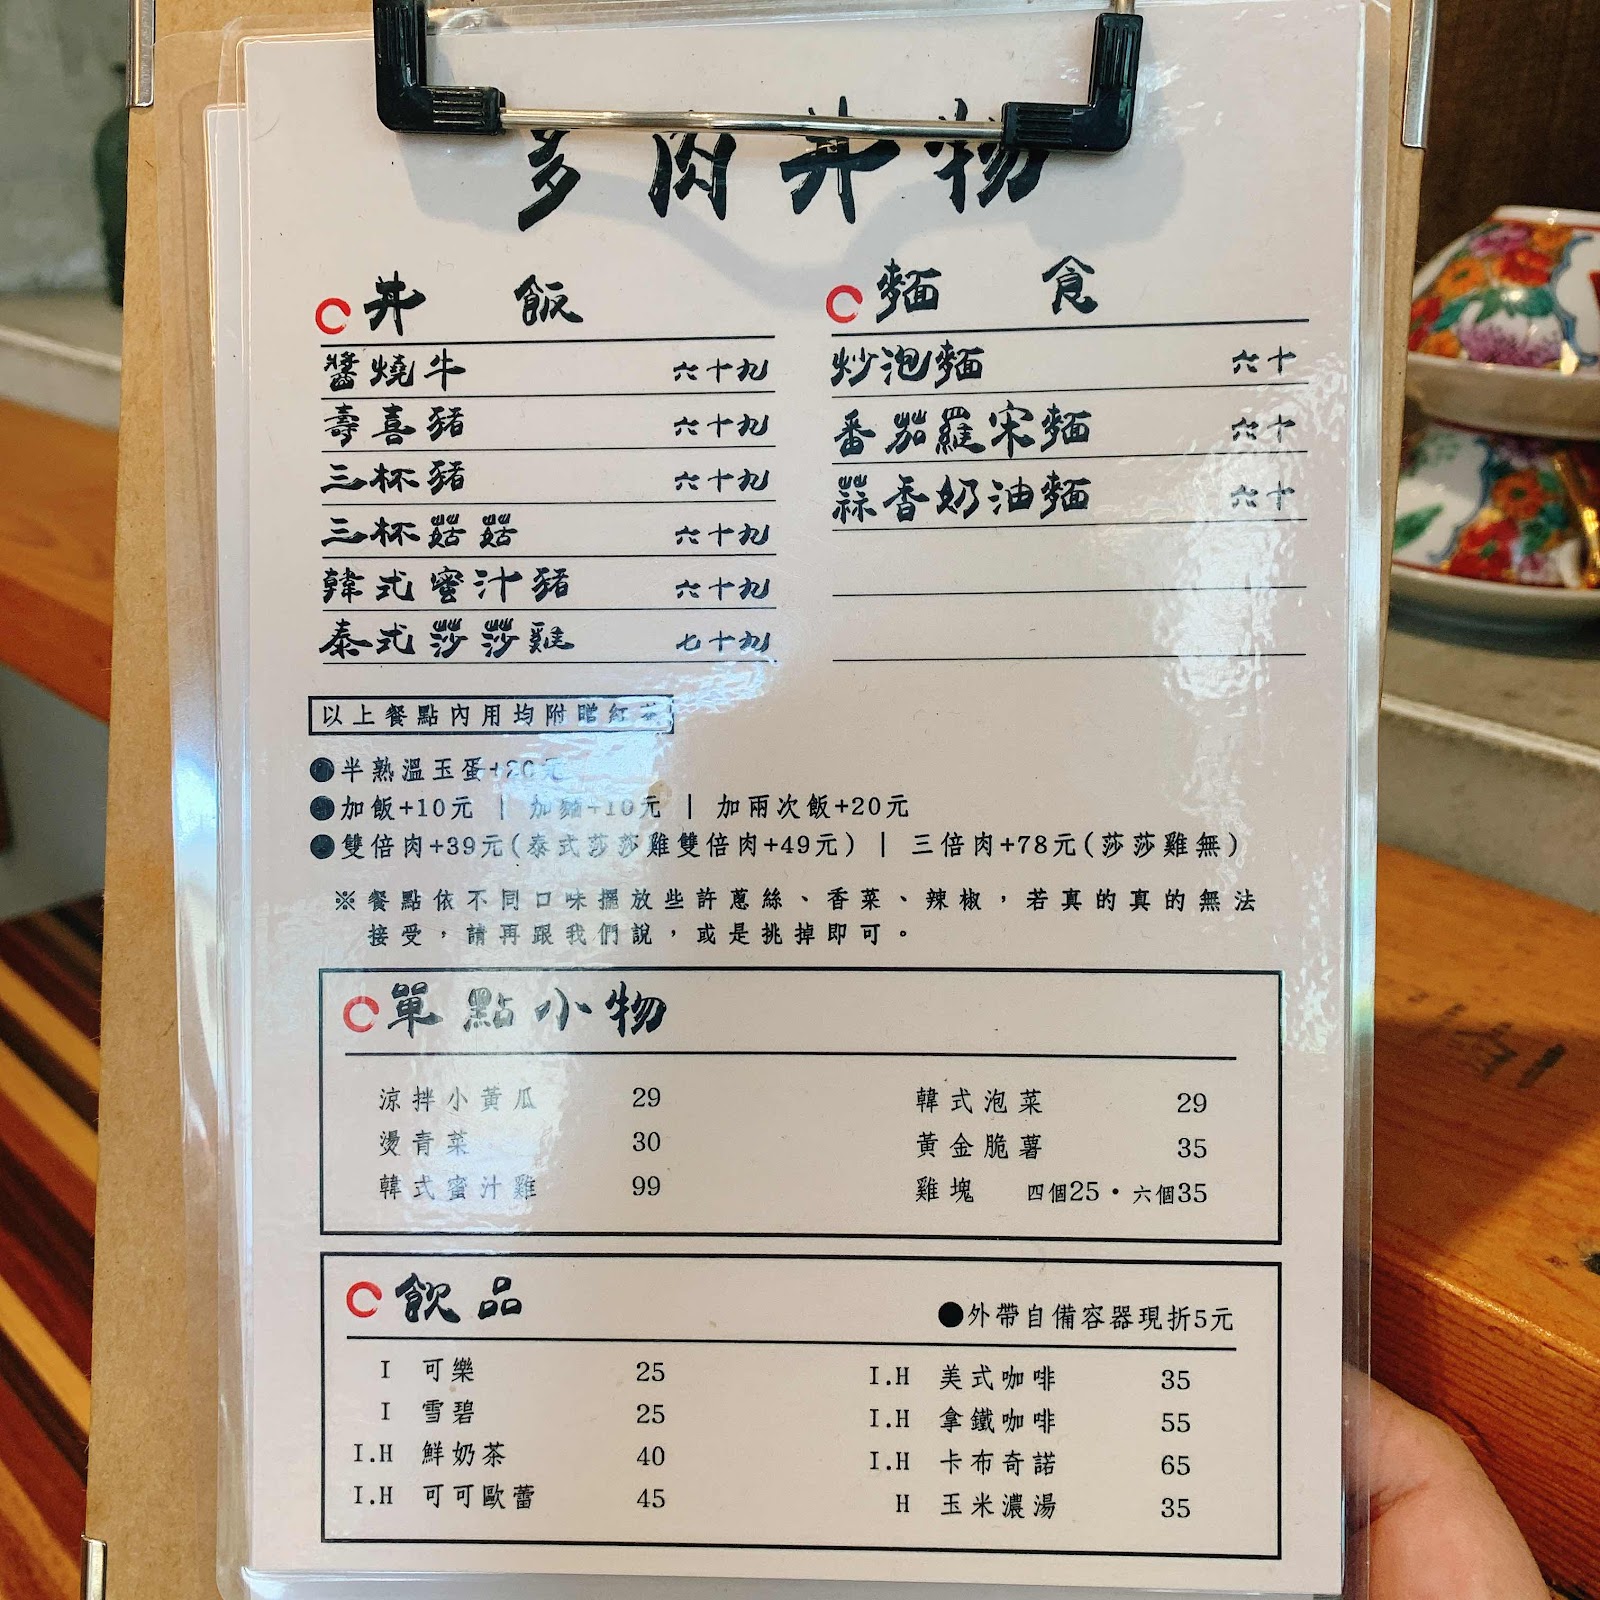 多肉丼物
丼飯
醬燒牛 六十九
壽喜豬 六十九
三杯豬 六十九
三杯菇菇 六十九
韓式蜜汁豬 六十九
泰式莎莎雞 七十九
麵食
炒泡麵 六十
番茄羅宋麵 六十
蒜香奶油麵 六十
以上餐點內用均附贈紅茶
●半熟溫玉蛋+20元
●加飯+10元 | 加麵+10元 | 加兩次飯+20元
●雙倍肉+39元(泰式莎莎雞雙倍肉+49元) | 三倍肉+78元(莎莎雞無)
※餐點依不同口味擺放些許蔥絲、香菜、辣椒,若真的真的無法
接受,請再跟我們說,或是挑掉即可。
單點小物
涼拌小黃瓜 29
燙青菜 30
韓式蜜汁雞 99
韓式泡菜 29
黃金脆薯 35
雞塊 四個25・六個35
飲品
●外帶自備容器現折5元
I 可樂 25
I 雪碧 25
I.H 鮮奶茶 40
I.H 可可歐蕾 45
I.H 美式咖啡 35
I.H 拿鐵咖啡 55
I.H 卡布奇諾 65
H 玉米濃湯 35